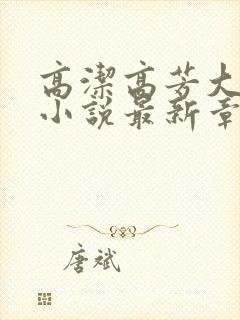 高潔高芳大
小說最新章
唐斌